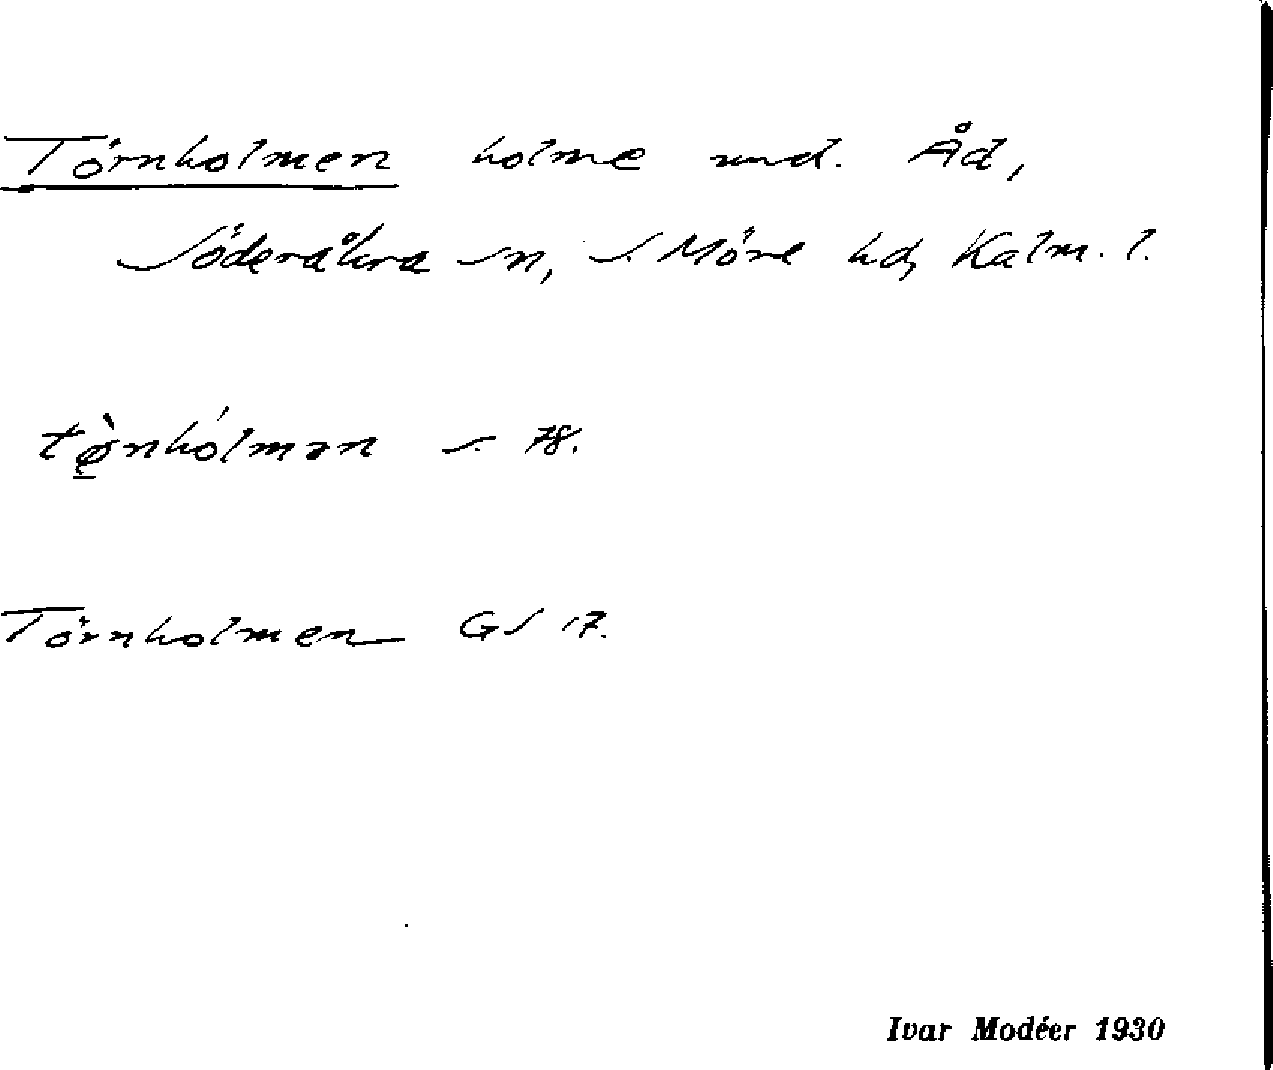 Törnholmen holme und. Åd,
Söderåkra sn, S. Möre hd, Kalm. l.
tø̀nhólmən s. 78.
Törnholmen GS 17.
Ivar Modéer 1930